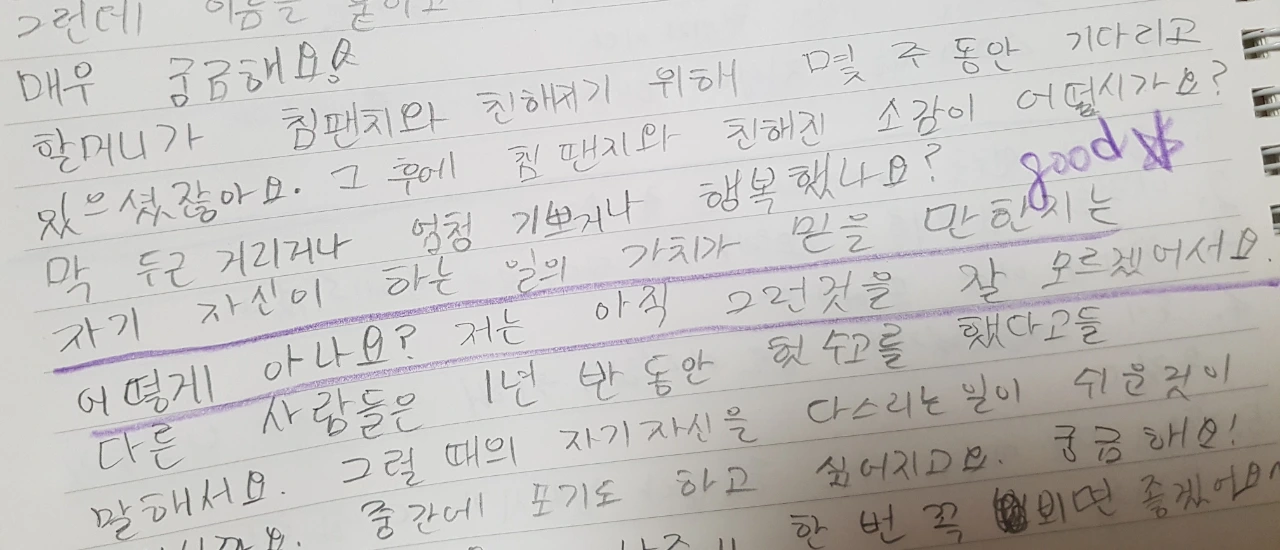 그런데 이름을 붙이고
매우 궁금해요
할머니가 침팬치와 친해지기 위해 몇 주 동안 기다리고
있으셨잖아요. 그 후에 침팬지와 친해진 소감이 어떨시가요?
막 두근 거리거나 엄청 기쁘거나 행복했나요?
good
자기 자신이 하는 일의 가치가 믿을 만한지는
어떻게 아나요? 저는 아직 그런것을 잘 모르겠어서요.
다른 사람들은 1년 반 동안 헛수고를 했다고들
말해서요. 그럴 때의 자기자신을 다스리는일이 쉬운것이
중간에 포기도 하고 싶어지고요. 궁금해요!
한 번 꼭 뵈면 좋겠어요